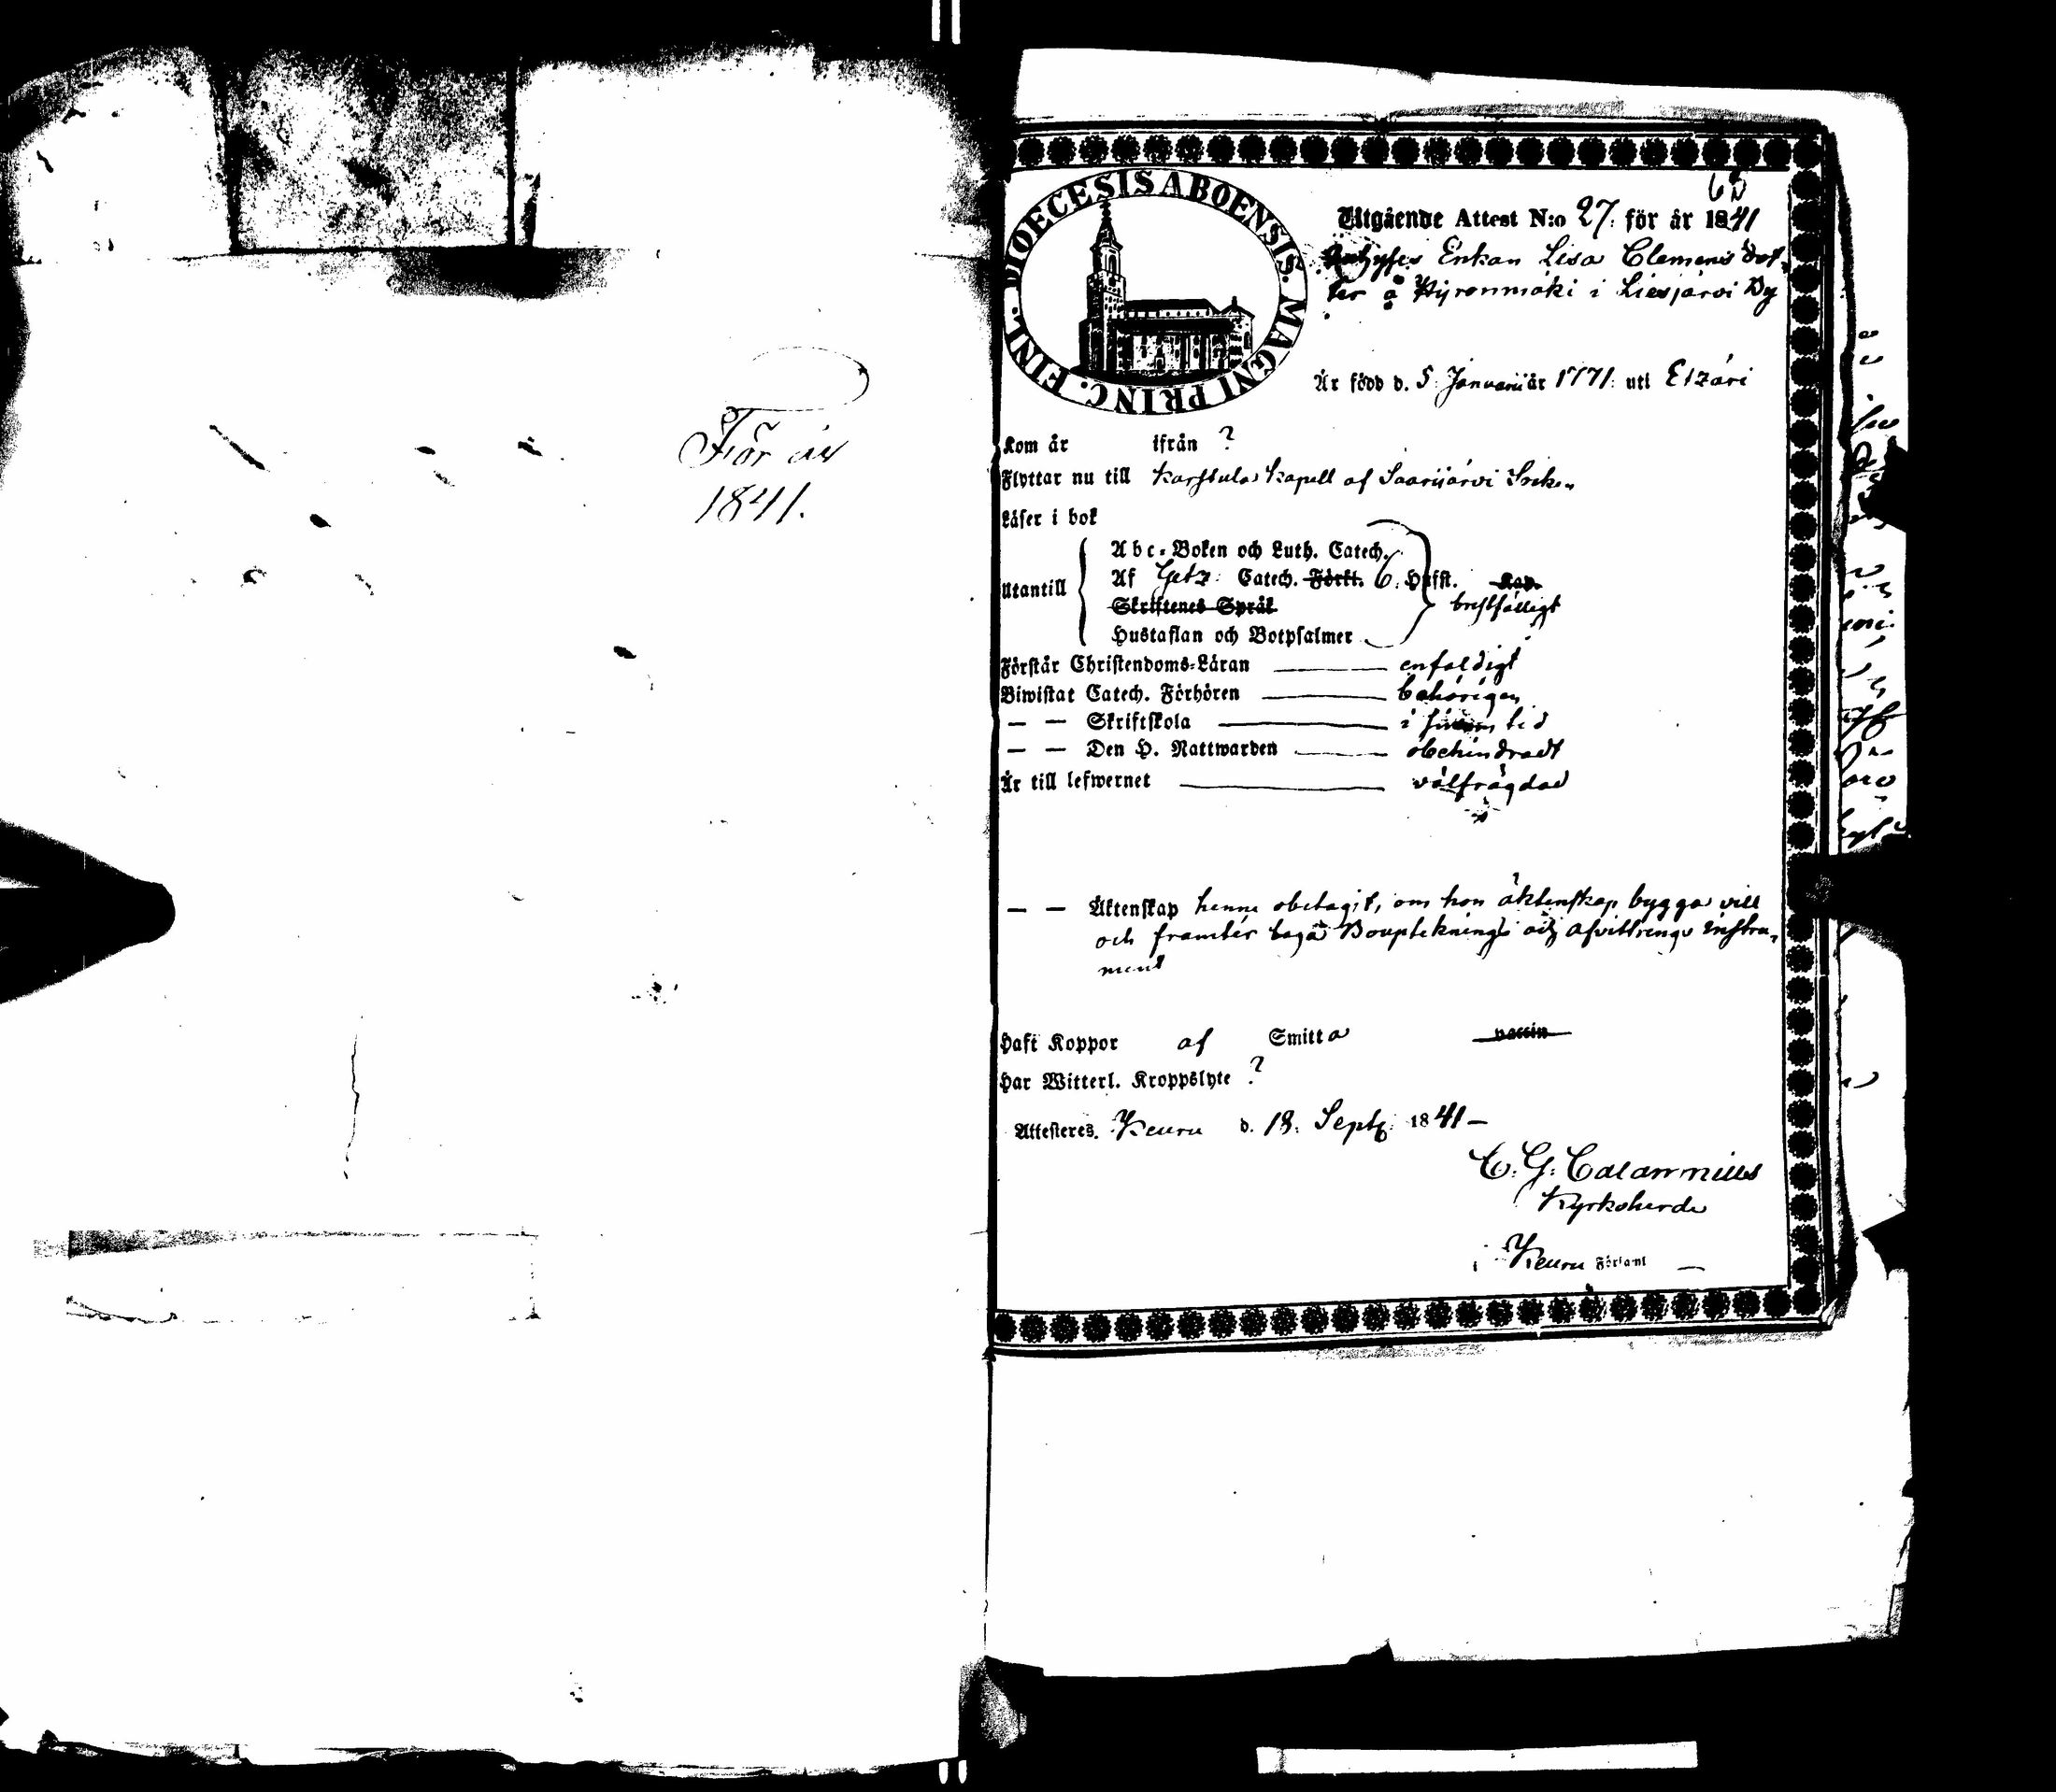 För år
1841.
DIOECESIS ABOENSIS. MAGNI PRINC. FINL.
63
Utgående Attest N:o 27. för år 1841
Inhyses Enkan Lisa Clemens dot-
ter å Hyrönmäki i Liesjärvi By
Är född d. 5 Januarii år 1771. uti Etzäri
Kom år ifrån ?
Flyttar nu till Karstula Kapell af Saarijärvi Socken
Läser i bok
Utantill
Abc-Boken och Luth. Catech.
Af Getz. Catech. Förkl. 6. Hufst. Kap.
Skriftenes Språk bristfälligt
Hustaflan och Botpsalmer
Förstår Christendoms-Läran enfaldigt
Biwistat Catech. Förhören behörigen
— — Skriftskola i sinom tid
— — Den H. Nattwarden obehindradt
Är till lefwernet välfrägdad
— — Äktenskap henne obetagit, om hon äktenskap bygga vill
och framtér laga Bouptekning och afvittrings instru-
ment
Haft Koppor af Smitta vaccin
Har Witterl. Kroppslyte ?
Attesteres. Keuru d. 18. Sept. 1841 –
C. G. Calamnius
Kyrkoherde
i Keuru Förſaml